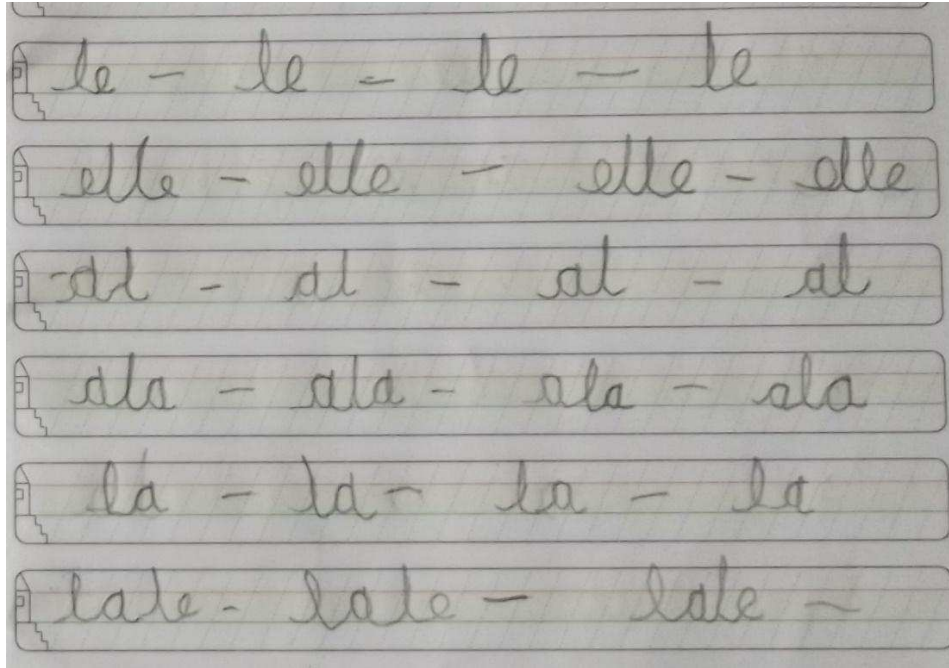 le - le - le - le
elle - elle - elle - elle
al - al - al - al
ala - ala - ala - ala
la - la - la - la
lale - lale - lale -